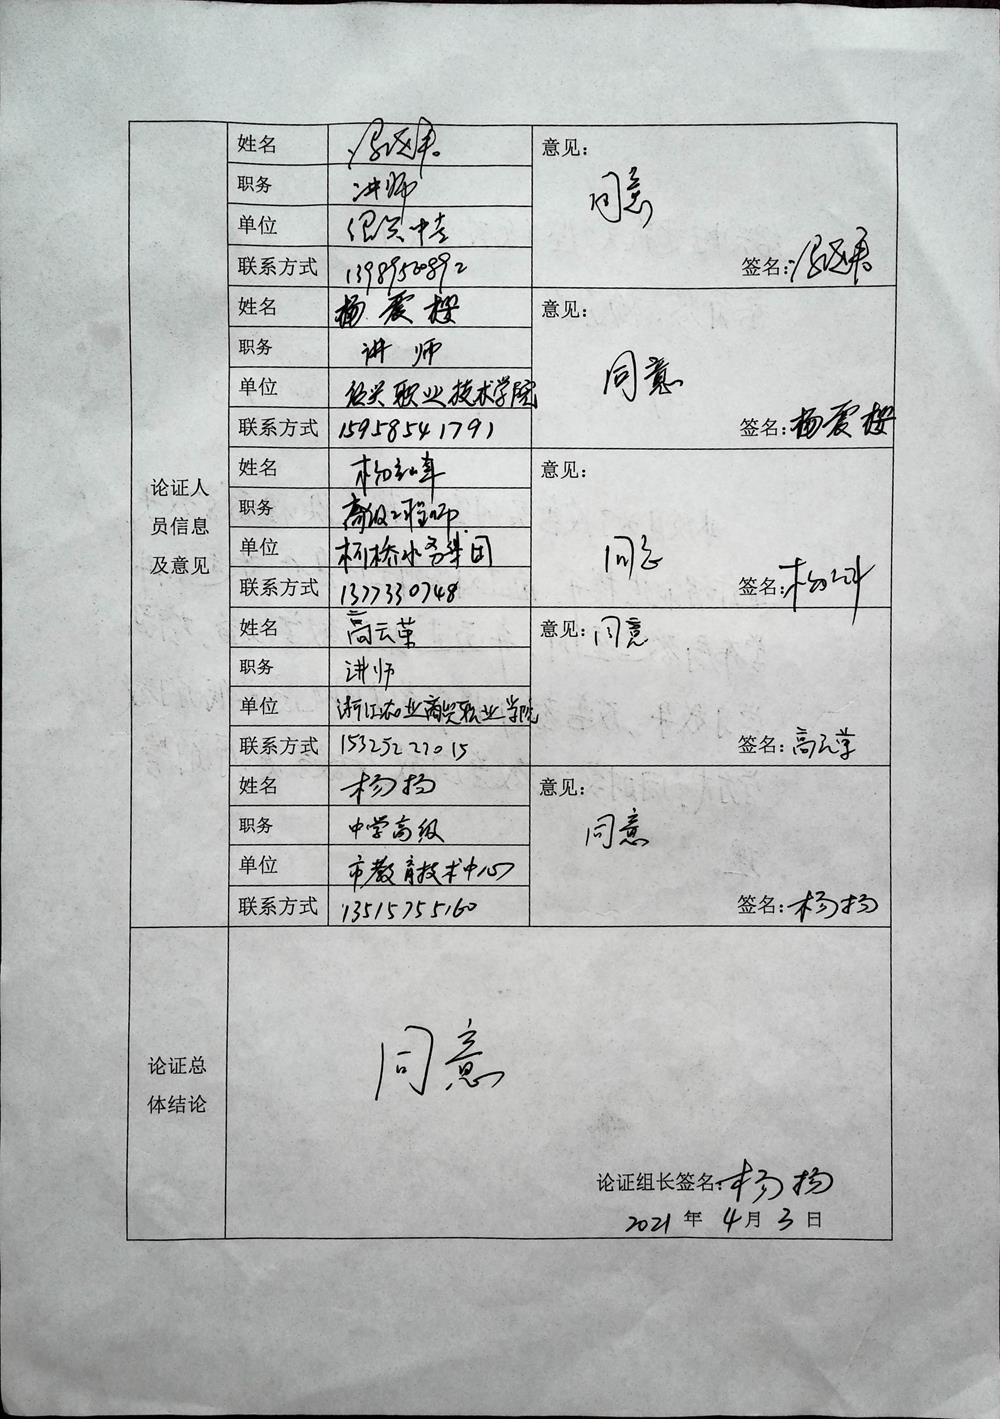 姓名
意见:
职务 讲师
同意
单位
签名:
联系方式 13989520892
姓名 杨震樱
意见:
职务 讲师
同意
单位 绍兴职业技术学院
联系方式 15958541791
签名: 杨震樱
论证人
员信息
及意见
姓名
意见:
职务 高级工程师
单位 柯桥水务集团
同意
联系方式 13773330748
签名:
姓名 高云萍
意见: 同意
职务 讲师
单位 浙江农业商贸职业学院
联系方式 15325227015
签名: 高云萍
姓名 杨扬
意见:
职务 中学高级
同意
单位 市教育技术中心
联系方式 13515755160
签名: 杨扬
论证总
体结论
同意
论证组长签名: 杨扬
2021 年 4 月 3 日